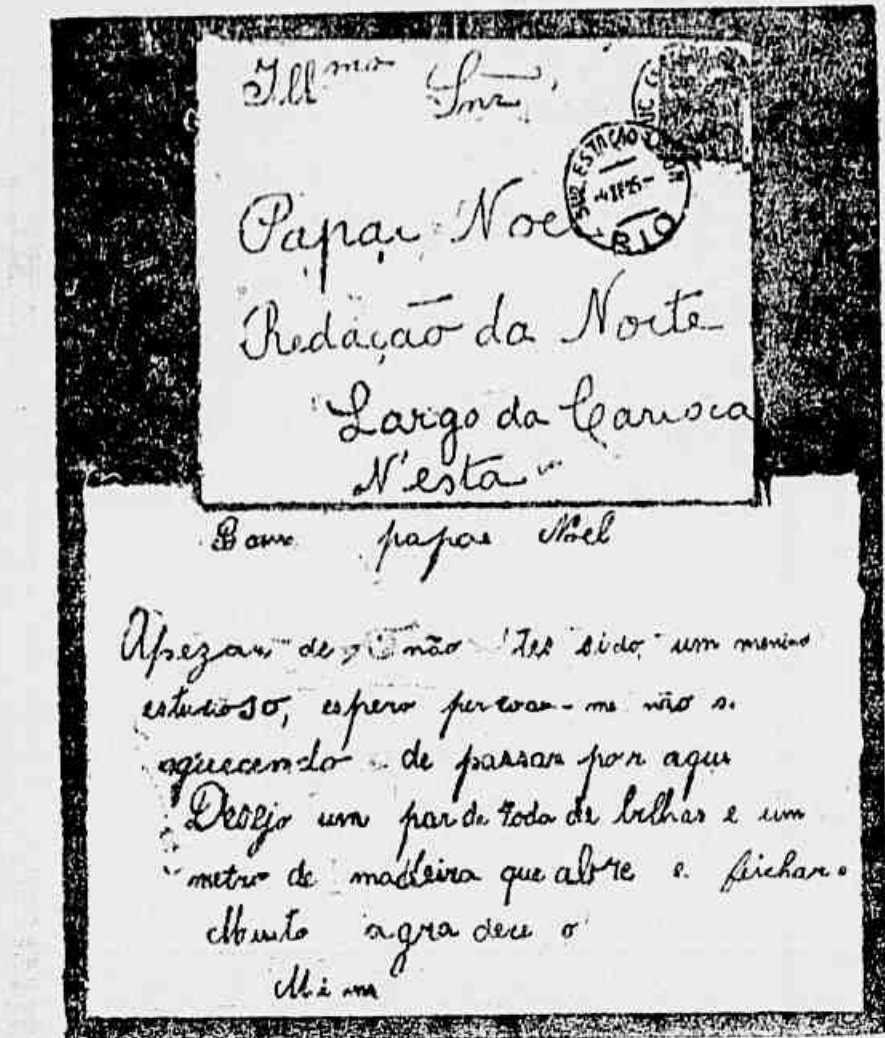 Ill.mo Snr.
Papai Noel
Redação da Noite
Largo da Carioca
N'esta
SUC. ESTAÇÃO
RIO
Bom papae Noel
Apezar de não ter sido, um menino
estudioso, espero perdoar-me não se
esquecendo de passar por aqui
Desejo um par de roda de bilhas e um
metro de madeira que abre e feichar.
Muito agradece o